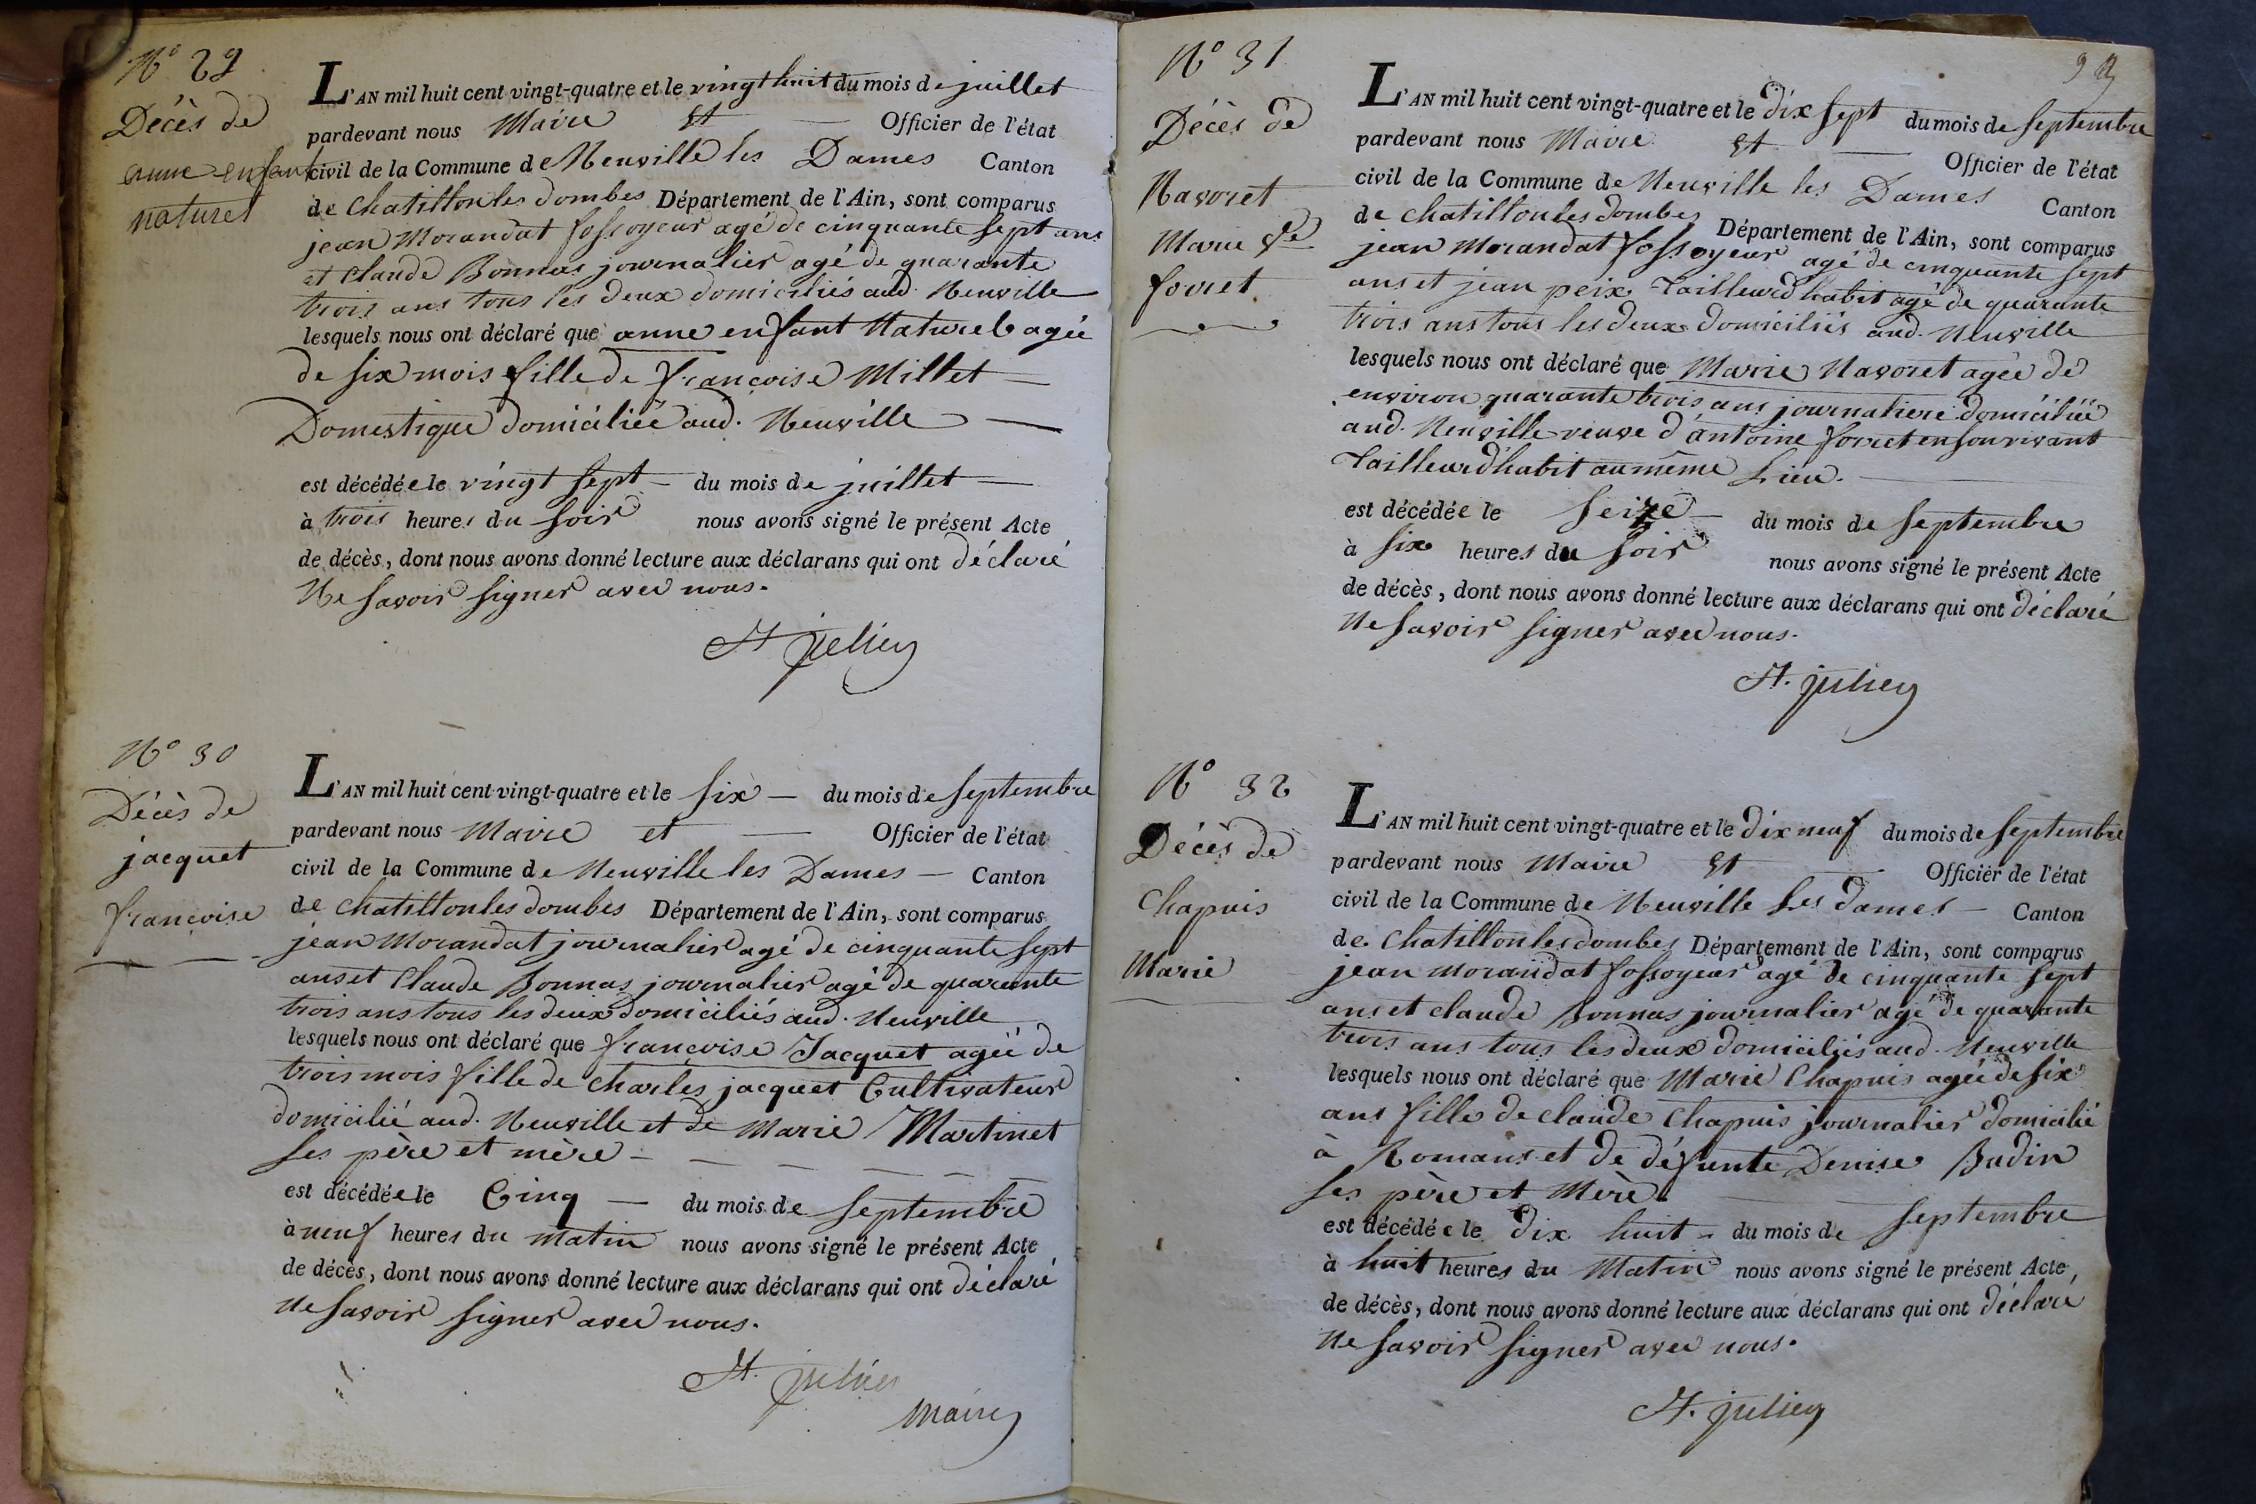 N° 29
Décès de
anne enfant
naturel
L'AN mil huit cent vingt-quatre et le vingt huit du mois de juillet
pardevant nous Maire et — Officier de l'état
civil de la Commune de Neuville les Dames Canton
de Chatillon les dombes Département de l'Ain, sont comparus
jean Morandat fossoyeur agé de cinquante sept ans
et Claude Bonnas journalier agé de quarante
trois ans tous les deux domiciliés aud. Neuville
lesquels nous ont déclaré que anne enfant Naturele agée
de six mois fille de françoise Millet —
Domestique domiciliée aud. Neuville —
est décédée le vingt sept — du mois de juillet —
à trois heures du soir nous avons signé le présent Acte
de décès, dont nous avons donné lecture aux déclarans qui ont déclaré
Ne savoir signer avec nous.
St julien
N° 30
Décès de
jacquet
françoise
L'AN mil huit cent vingt-quatre et le six — du mois de septembre
pardevant nous Maire et — Officier de l'état
civil de la Commune de Neuville les Dames — Canton
de Chatillon les dombes Département de l'Ain, sont comparus
jean Morandat journalier agé de cinquante sept
ans et Claude Bonnas journalier agé de quarante
trois ans tous les deux domiciliés aud. Neuville
lesquels nous ont déclaré que françoise Jacquet agée de
trois mois fille de Charles jacquet Cultivateur
domicilié aud. Neuville et de Marie Martinet
ses père et mère —
est décédée le Cinq — du mois de septembre
à neuf heures du matin nous avons signé le présent Acte
de décès, dont nous avons donné lecture aux déclarans qui ont déclaré
Ne savoir signer avec nous.
St. julien
Maire
N° 31
Décès de
Navoret
Marie Ve
forret
L'AN mil huit cent vingt-quatre et le dix sept du mois de septembre
pardevant nous Maire et — Officier de l'état
civil de la Commune de Neuville les Dames Canton
de Chatillon les dombes Département de l'Ain, sont comparus
jean Morandat fossoyeur agé de cinquante sept
ans et jean peix Tailleur d'habit agé de quarante
trois ans tous les deux domiciliés aud. Neuville
lesquels nous ont déclaré que Marie Navoret agée de
environ quarante trois ans journaliere domiciliée
aud. Neuville veuve d'antoine forret en son vivant
Tailleur d'habit au même Lieu. —
est décédée le seize — du mois de septembre
à six heures du soir nous avons signé le présent Acte
de décès, dont nous avons donné lecture aux déclarans qui ont déclaré
Ne savoir signer avec nous.
St. julien
N° 32
Décès de
Chapuis
Marie
L'AN mil huit cent vingt-quatre et le dix neuf du mois de septembre
pardevant nous Maire et — Officier de l'état
civil de la Commune de Neuville Les dames — Canton
de Chatillon les dombes Département de l'Ain, sont comparus
jean Morandat fossoyeur agé de cinquante sept
ans et claude Bonnas journalier agé de quarante
trois ans tous les deux domiciliés aud. Neuville
lesquels nous ont déclaré que Marie Chapuis agée de six
ans fille de claude Chapuis journalier domicilié
à Romans et de défunte Denise Budin
ses père et Mère.
est décédée le dix huit — du mois de septembre
à huit heures du Matin nous avons signé le présent Acte
de décès, dont nous avons donné lecture aux déclarans qui ont déclaré
Ne savoir signer avec nous.
St. julien